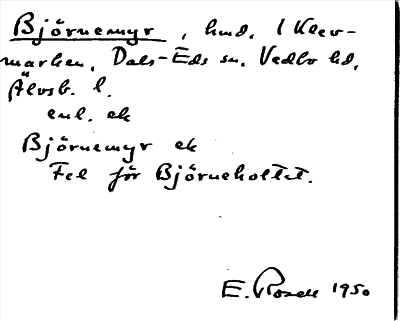 Björnemyr, hmd. I Klev-
marken, Dals-Eds sn. Vedbo hd.
Älvsb. l.
enl. ek
Björnemyr ek
Fel för Björneholtet.
E. Rosell 1950